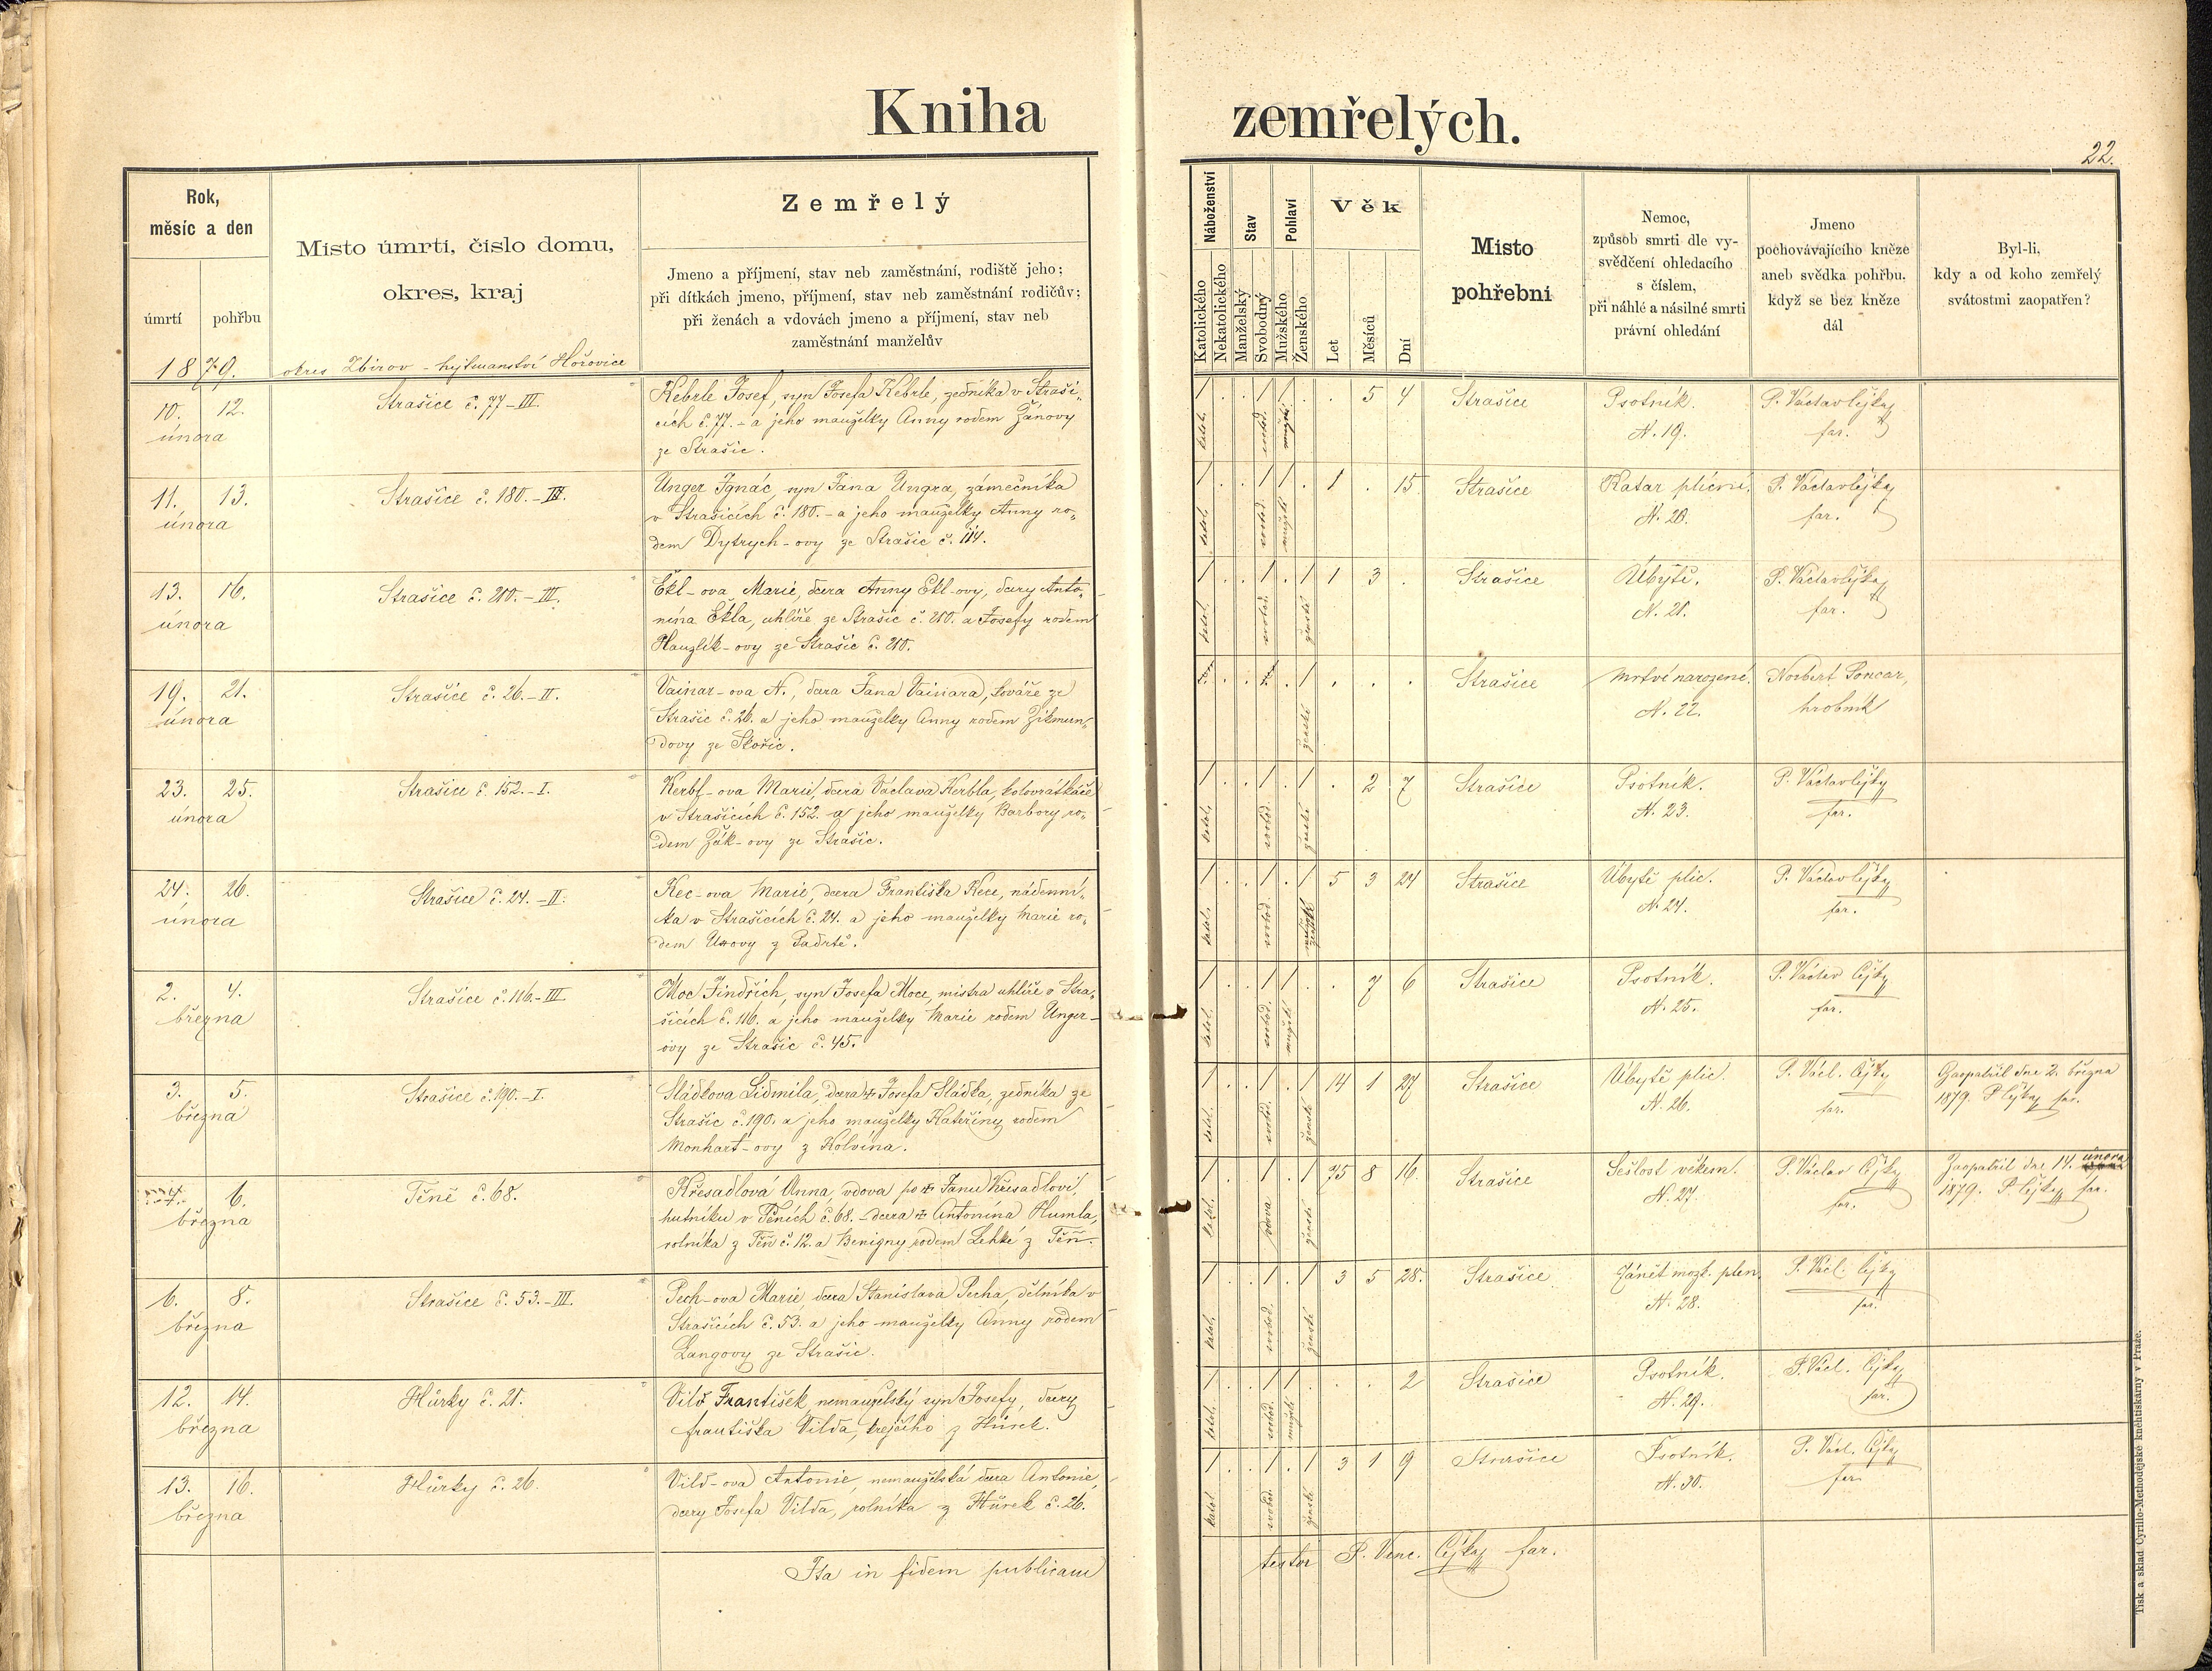 Kniha zemřelých.
22.
Rok,
měsíc a den
úmrtí
pohřbu
Místo úmrtí, číslo domu,
okres, kraj
Zemřelý
Jmeno a příjmení, stav neb zaměstnání, rodiště jeho;
při dítkách jmeno, příjmení, stav neb zaměstnání rodičův;
při ženách a vdovách jmeno a příjmení, stav neb
zaměstnání manželův
Náboženství
Katolického
Nekatolického
Stav
Manželský
Svobodný
Pohlaví
Mužského
Ženského
Věk
Let
Měsíců
Dní
Místo
pohřební
Nemoc,
způsob smrti dle vy-
svědčení ohledacího
s číslem,
při náhlé a násilné smrti
právní ohledání
Jmeno
pochovávajícího kněze
aneb svědka pohřbu,
když se bez kněze
dál
Byl-li,
kdy a od koho zemřelý
svátostmi zaopatřen?
1879.
okres Zbirov - hejtmanství Hořovice
10. 12.
února
Strašice č. 77-III.
Kebrle Josef, syn Josefa Kebrle, zedníka v Straši-
cích č. 77. - a jeho manželky Anny rodem Žánovy
ze Strašic.
katol. svobod. mužské
. 5 4
Strašice
Psotník.
N. 19.
P. Václav Čejky
far.
11. 13.
února
Strašice č. 180.-II.
Unger Ignác, syn Jana Ungra, zámečníka
v Strašicích č. 180. - a jeho manželky Anny ro-
dem Dytrych-ovy ze Strašic č. 114.
katol. svobod. mužské
1 . 15.
Strašice
Katar plicní.
N. 20.
P. Václav Čejky
far.
13. 16.
února
Strašice č. 210.-III.
Ekl-ova Marie, dcera Anny Ekl-ovy, dcery Anto-
nína Ekla, uhlíře ze Strašic č. 210. a Josefy rodem
Hauzlík-ovy ze Strašic č. 210.
katol. svobod. ženské
1 3 .
Strašice
Úbytě.
N. 21.
P. Václav Čejky
far.
19. 21.
února
Strašice č. 26.-II.
Vainar-ova N., dcera Jana Vainara, kováře ze
Strašic č. 26. a jeho manželky Anny rodem Zikmun-
dovy ze Skořic.
ženské
. . .
Strašice
Mrtvě narozené.
N. 22.
Norbert Poncar,
hrobník
23. 25.
února
Strašice č. 152.-I.
Kerbl-ova Marie, dcera Václava Kerbla, kolovrátkáře
v Strašicích č. 152. a jeho manželky Barbory ro-
dem Žák-ovy ze Strašic.
katol. svobod. ženské
. 2 7
Strašice
Psotník.
N. 23.
P. Václav Čejky
far.
24. 26.
února
Strašice č. 24.-II.
Kec-ova Marie, dcera Františka Kece, nádenní-
ka v Strašicích č. 24. a jeho manželky Marie ro-
dem z Padrtě.
katol. svobod. ženské
5 3 24
Strašice
Úbytě plic.
N. 24.
P. Václav Čejky
far.
2. 4.
března
Strašice č. 116.-III.
Moc Jindřich, syn Josefa Moce, mistra uhlíře v Stra-
šicích č. 116. a jeho manželky Marie rodem Unger-
ovy ze Strašic č. 45.
katol. svobod. mužské
. 7 6
Strašice
Psotník.
N. 25.
P. Václav Čejky
far.
3. 5.
března
Strašice č. 190.-I.
Sládkova Lidmila, dcera + Josefa Sládka, zedníka ze
Strašic č. 190. a jeho manželky Kateřiny rodem
Monhart-ovy z Kolvína.
katol. svobod. ženské
14 1 27
Strašice
Úbytě plic.
N. 26.
P. Václ. Čejky
far.
Zaopatřil dne 2. března
1879. P. Čejky far.
4. 6.
března
Těně č. 68.
Křesadlová Anna, vdova po + Janu Křesadlovi,
hutníku v Těních č. 68. - dcera + Antonína Humla,
rolníka z Těň č. 12. a Benigny rodem Lehké z Těň.
katol. vdova ženské
75 8 16.
Strašice
Sešlost věkem.
N. 27.
P. Václav Čejky
far.
Zaopatřil dne 14. února
1879. P. Čejky far.
6. 8.
března
Strašice č. 53.-III.
Pech-ova Marie, dcera Stanislava Pecha, dělníka v
Strašicích č. 53. a jeho manželky Anny rodem
Langovy ze Strašic.
katol. svobod. ženské
3 5 28.
Strašice
Zánět mozk. plen.
N. 28.
P. Václ. Čejky
far.
12. 14.
března
Hůrky č. 21.
Vild František, nemanželský syn Josefy, dcery
Františka Vilda, krejčího z Hůrek.
katol. svobod. mužské
. . 2
Strašice
Psotník.
N. 29.
P. Václ. Čejky
far.
13. 16.
března
Hůrky č. 26.
Vild-ova Antonie, nemanželská dcera Antonie,
dcery Josefa Vilda, rolníka z Hůrek č. 26.
katol. svobod. ženské
3 1 9
Strašice
Psotník.
N. 30.
P. Václ. Čejky
far.
Ita in fidem publicam testor P. Venc. Čejky far.
Tisk a sklad Cyrillo-Methodějské knihtiskárny v Praze.